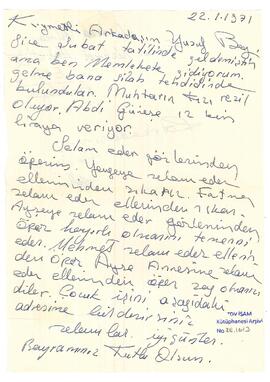 22.1.1971
Kıymetli Arkadaşım Yusuf Bey
Size şubat tatilinde geldemiştin
ama ben Memlekete gidiyorum.
gelme bana silah tehdidinde
bulundular. Muhtarın kızı rezil
oluyor. Abdi Güzere 12 bin
liraya veriyor.
Selam eder gözlerinden
öperim. Yengeye selam eder
ellerinden sıkarız. Fatma
selam eder ellerinden sıkar.
Ayşeye selam eder gözlerinden
öper hayırlı olmasını temenni
eder. Mehmet selam eder ellerin
den öper Ayşe Annesine selam
eder ellerinden öper
diler. Çocuk işini aşağıdaki
adresine bildirirsiniz
selamlar iyi günler.
Bayramınız Kutlu Olsun.
TDV İSAM
Kütüphanesi Arşivi
No